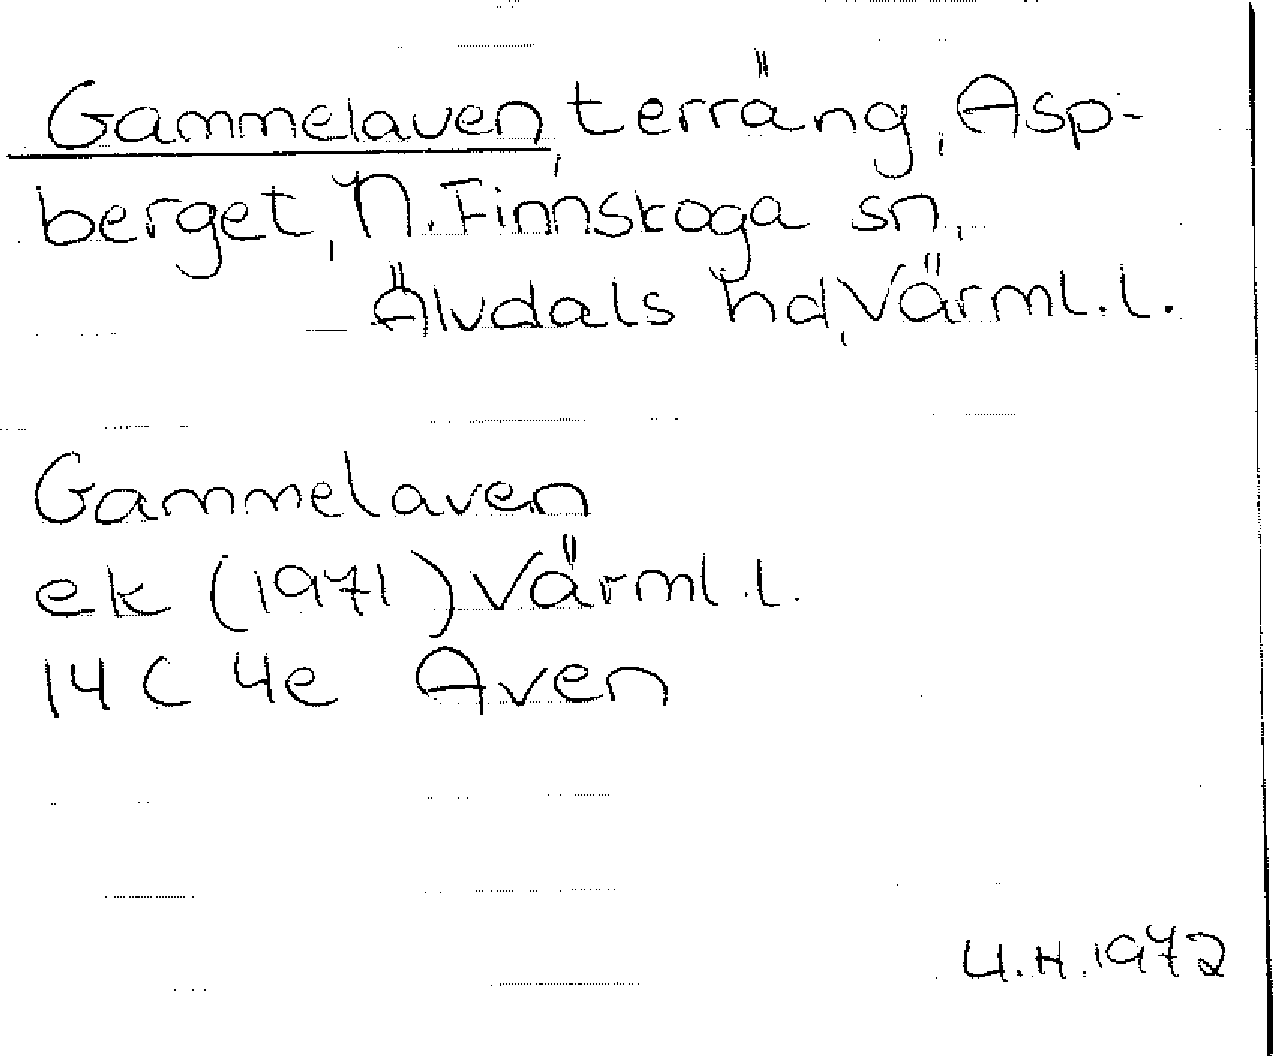 Gammelaven, terräng, Asp-
berget, N. Finnskoga sn,
Älvdals hd, Värml. l.
Gammelaven
ek (1971) Värml. l.
14 C 4e Aven
U.H. 1972